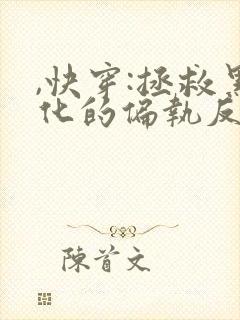 ,快穿:拯救黑
化的偏執反
陳首文